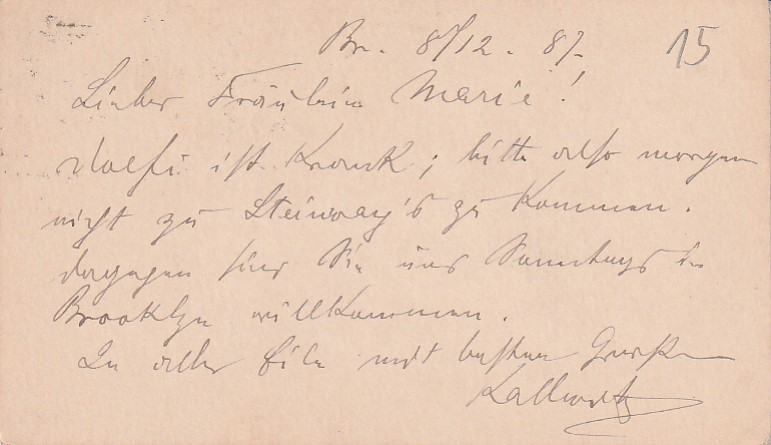 Br. 8/12. 87.
15
Liebes Fräulein Marie!
ist krank; bitte also morgen
nicht zu Steinway's zu kommen.
dagegen sind Sie uns Sonntags in
Brooklyn willkommen.
In aller Eile mit besten Grüßen